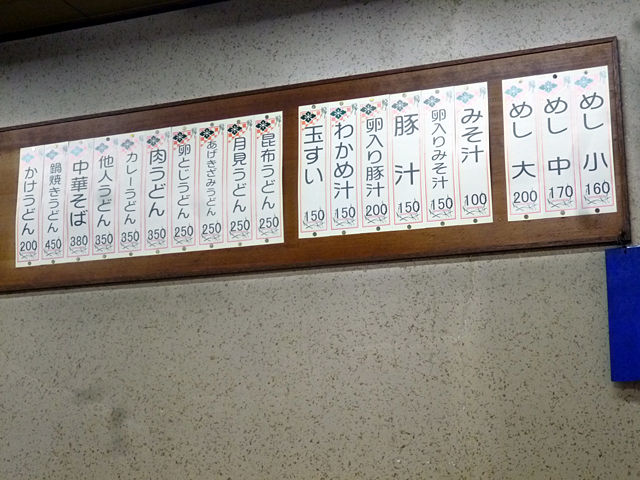 めし 小 160
めし 中 170
めし 大 200
みそ汁 100
卵入りみそ汁 150
豚汁 150
卵入り豚汁 200
わかめ汁 150
玉すい 150
昆布うどん 250
月見うどん 250
あげきざみうどん 250
卵とじうどん 250
肉うどん 350
カレーうどん 350
他人うどん 350
中華そば 380
鍋焼きうどん 450
かけうどん 200